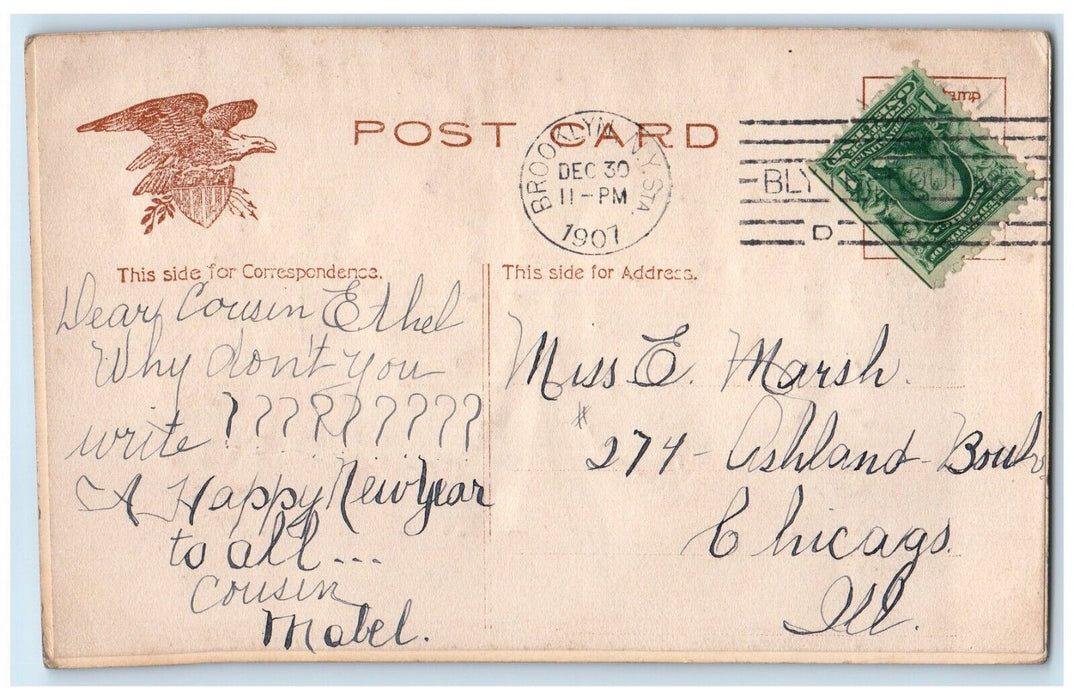 POST CARD
BROOKLYN, N.Y. STA.
DEC 30
11-PM
1907
This side for Correspondence.
This side for Address.
Dear Cousin Ethel
Why don't you
write ?????????
A Happy New Year
to all...
Cousin
Mabel.
Miss E. Marsh.
# 274 - Ashland - Boul.
Chicago.
Ill.